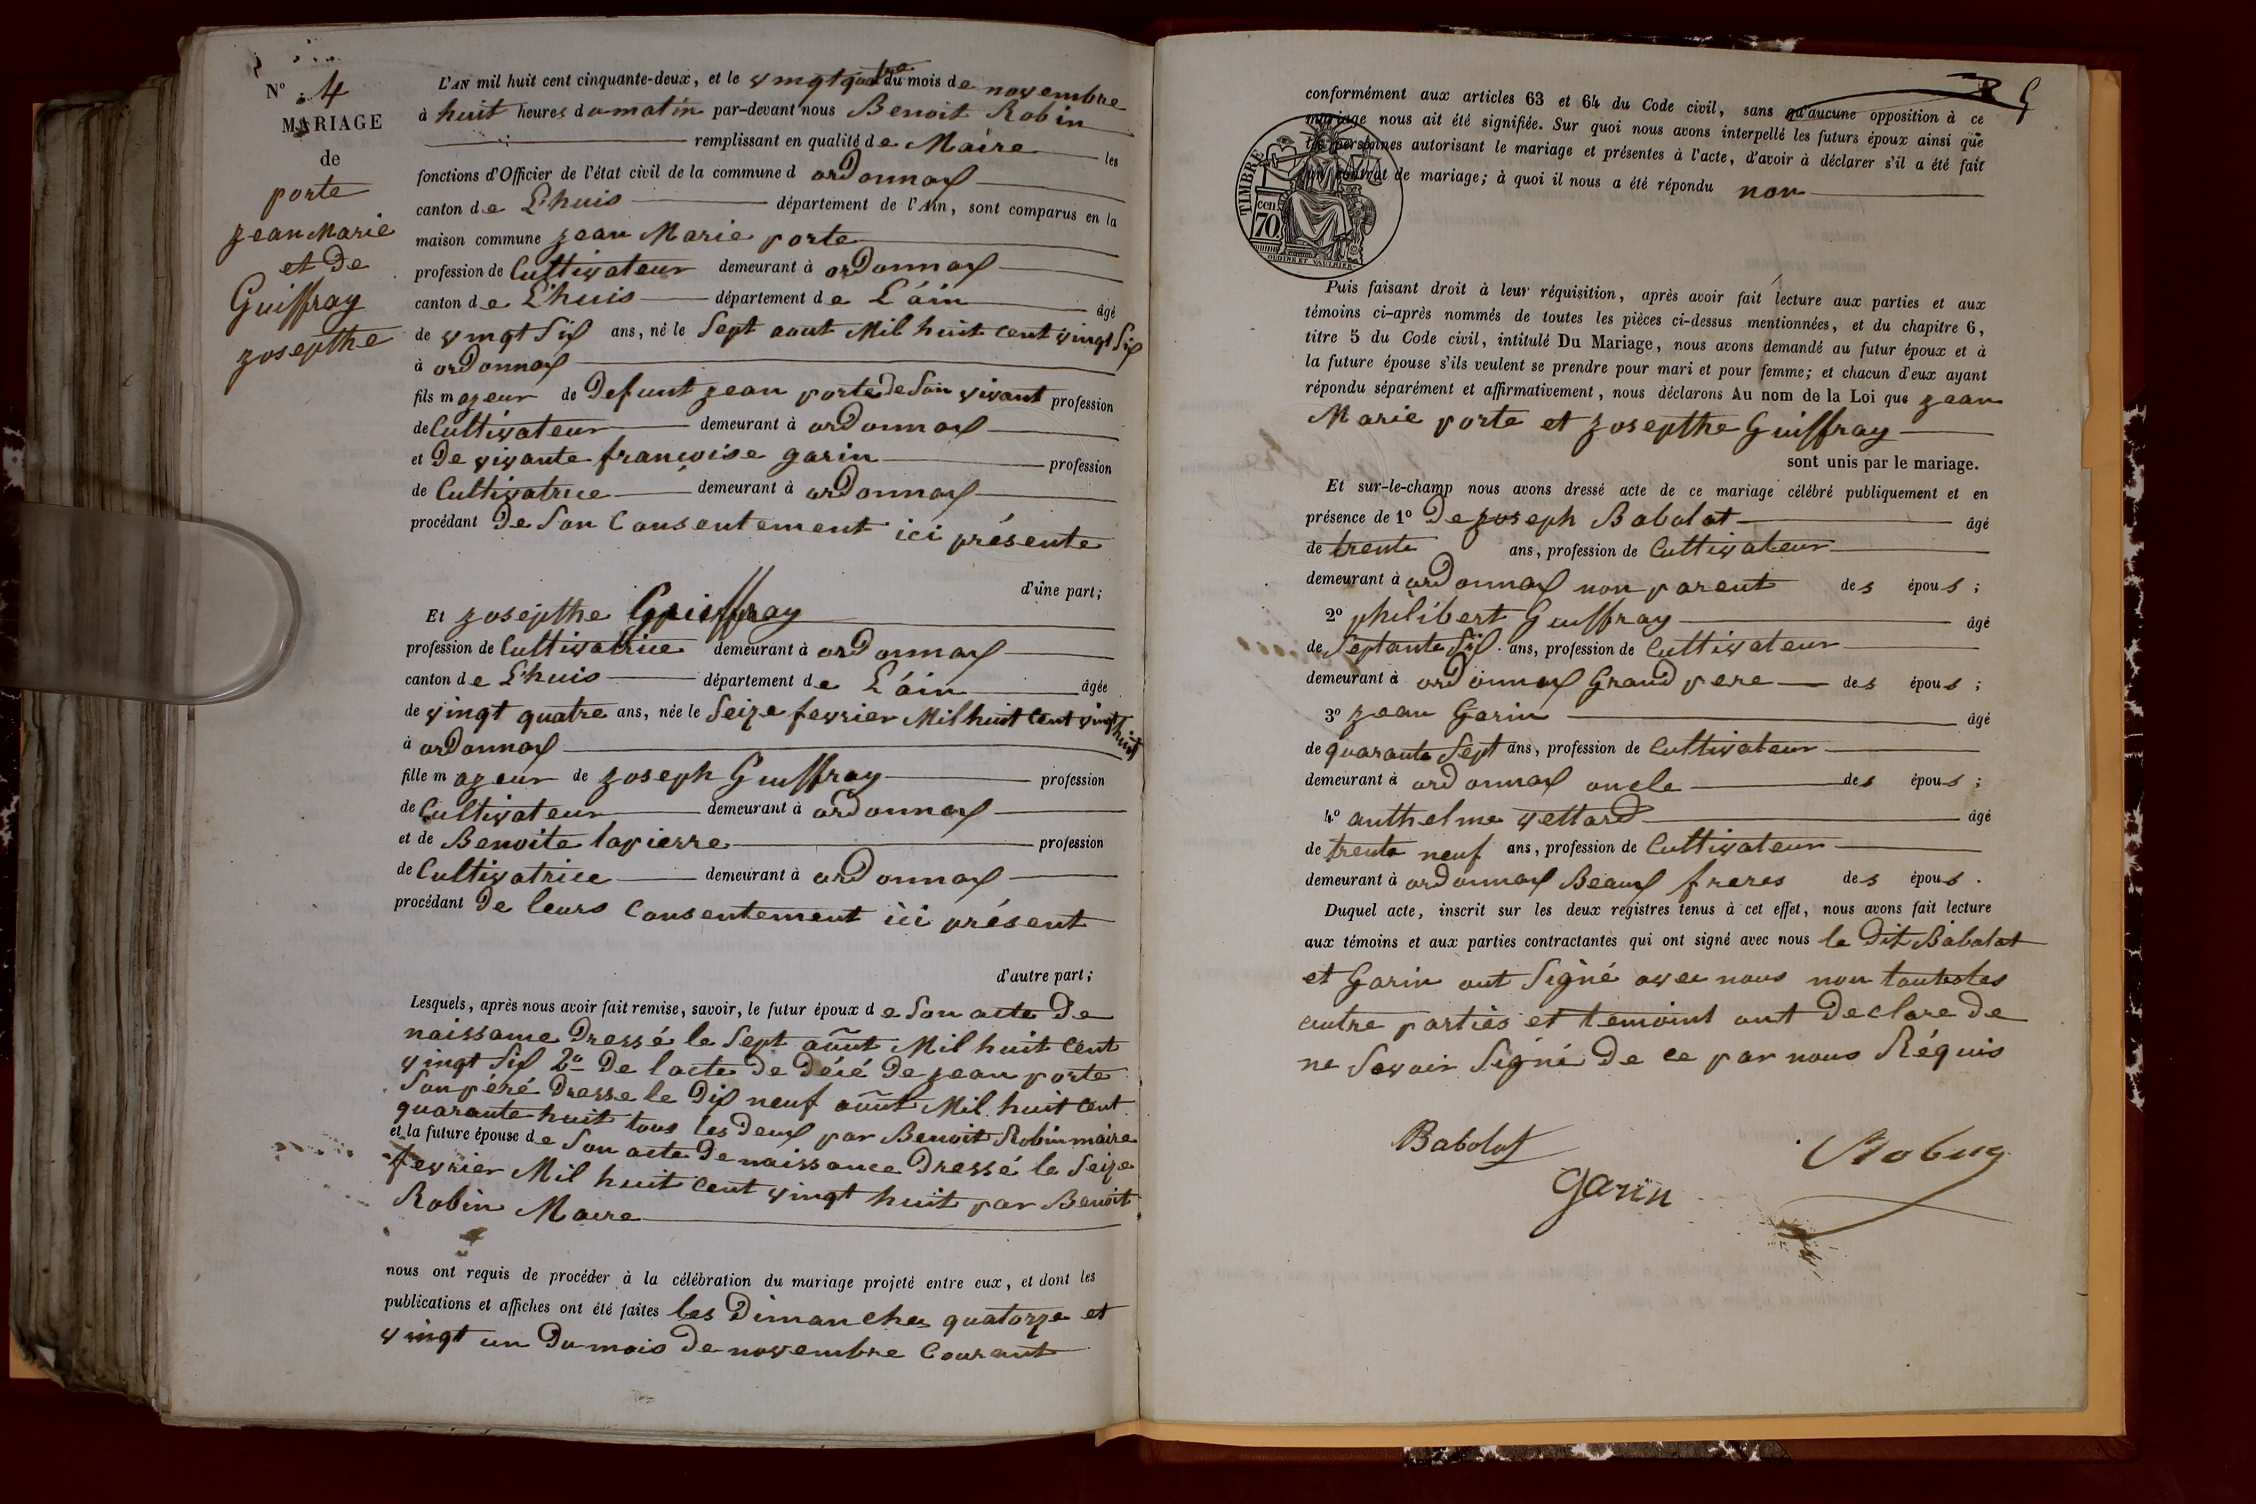 Nº 4
MARIAGE
de
porte
jean Marie
et De
Guiffray
josepthe
L'AN mil huit cent cinquante-deux, et le vingt quatre du mois de novembre
à huit heures du matin par-devant nous Benoit Robin
remplissant en qualité de Maire les
fonctions d'Officier de l'état civil de la commune d ordonnax
canton de L'huis département de l'AIN, sont comparus en la
maison commune jean Marie porte
profession de Cultivateur demeurant à ordonnax
canton de L'huis département de L'ain âgé
de vingt Six ans, né le Sept aout Mil huit cent vingt Six
à ordonnax
fils majeur de Defunt jean porte de Son vivant profession
de Cultivateur demeurant à ordonnax
et De vivante françoise garin profession
de Cultivatrice demeurant à ordonnax
procédant De Son Consentement ici présente
d'une part;
Et josepthe Guiffray
profession de Cultivatrice demeurant à ordonnax
canton de L'huis département de L'ain âgée
de vingt quatre ans, née le Seize fevrier Mil huit Cent vingt huit
à ordonnax
fille majeur de joseph Guiffray profession
de Cultivateur demeurant à ordonnax
et de Benoite lapierre profession
de Cultivatrice demeurant à ordonnax
procédant De leurs Consentement ici présent
d'autre part;
Lesquels, après nous avoir fait remise, savoir, le futur époux de Son acte De
naissance Dressé le Sept aout Mil huit Cent
vingt Six 2º De lacte de Décé De jean porte
Son péré Dresse le Dix neuf aout Mil huit Cent
quarante huit tous les deux par Benoit Robin maire
et la future épouse de Son acte De naissance Dressé le Seize
fevrier Mil huit Cent vingt huit par Benoit
Robin Maire
nous ont requis de procéder à la célébration du mariage projeté entre eux, et dont les
publications et affiches ont été faites les Dimanches quatorze et
vingt un Du mois De novembre Courant
conformément aux articles 63 et 64 du Code civil, sans qu'aucune opposition à ce
mariage nous ait été signifiée. Sur quoi nous avons interpellé les futurs époux ainsi que
les personnes autorisant le mariage et présentes à l'acte, d'avoir à déclarer s'il a été fait
un contrat de mariage; à quoi il nous a été répondu non
TIMBRE
cen
70
OUDINE ET VAUTHIER
Puis faisant droit à leur réquisition, après avoir fait lecture aux parties et aux
témoins ci-après nommés de toutes les pièces ci-dessus mentionnées, et du chapitre 6,
titre 5 du Code civil, intitulé Du Mariage, nous avons demandé au futur époux et à
la future épouse s'ils veulent se prendre pour mari et pour femme; et chacun d'eux ayant
répondu séparément et affirmativement, nous déclarons Au nom de la Loi que jean
Marie porte et josepthe Guiffray
sont unis par le mariage.
Et sur-le-champ nous avons dressé acte de ce mariage célébré publiquement et en
présence de 1º De joseph Babolat âgé
de trente ans, profession de Cultivateur
demeurant à ordonnax non parent des épous;
2º philibert Guiffray âgé
de Septante Six ans, profession de Cultivateur
demeurant à ordonnax Grand pere des épous;
3º jean Garin âgé
de quarante Sept ans, profession de Cultivateur
demeurant à ordonnax oncle des épous;
4º anthelme vettard âgé
de trente neuf ans, profession de Cultivateur
demeurant à ordonnax Beaux freres des épous.
Duquel acte, inscrit sur les deux registres tenus à cet effet, nous avons fait lecture
aux témoins et aux parties contractantes qui ont signé avec nous le Dit Babolat
et Garin ont Signé avec nous non toutes les
autre parties et temoint ont Declare De
ne Savoir Signé De ce par nous Réquis
Babolat
Garin
Robin